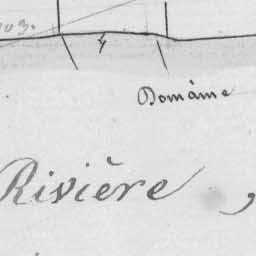 Domâine
Rivière,